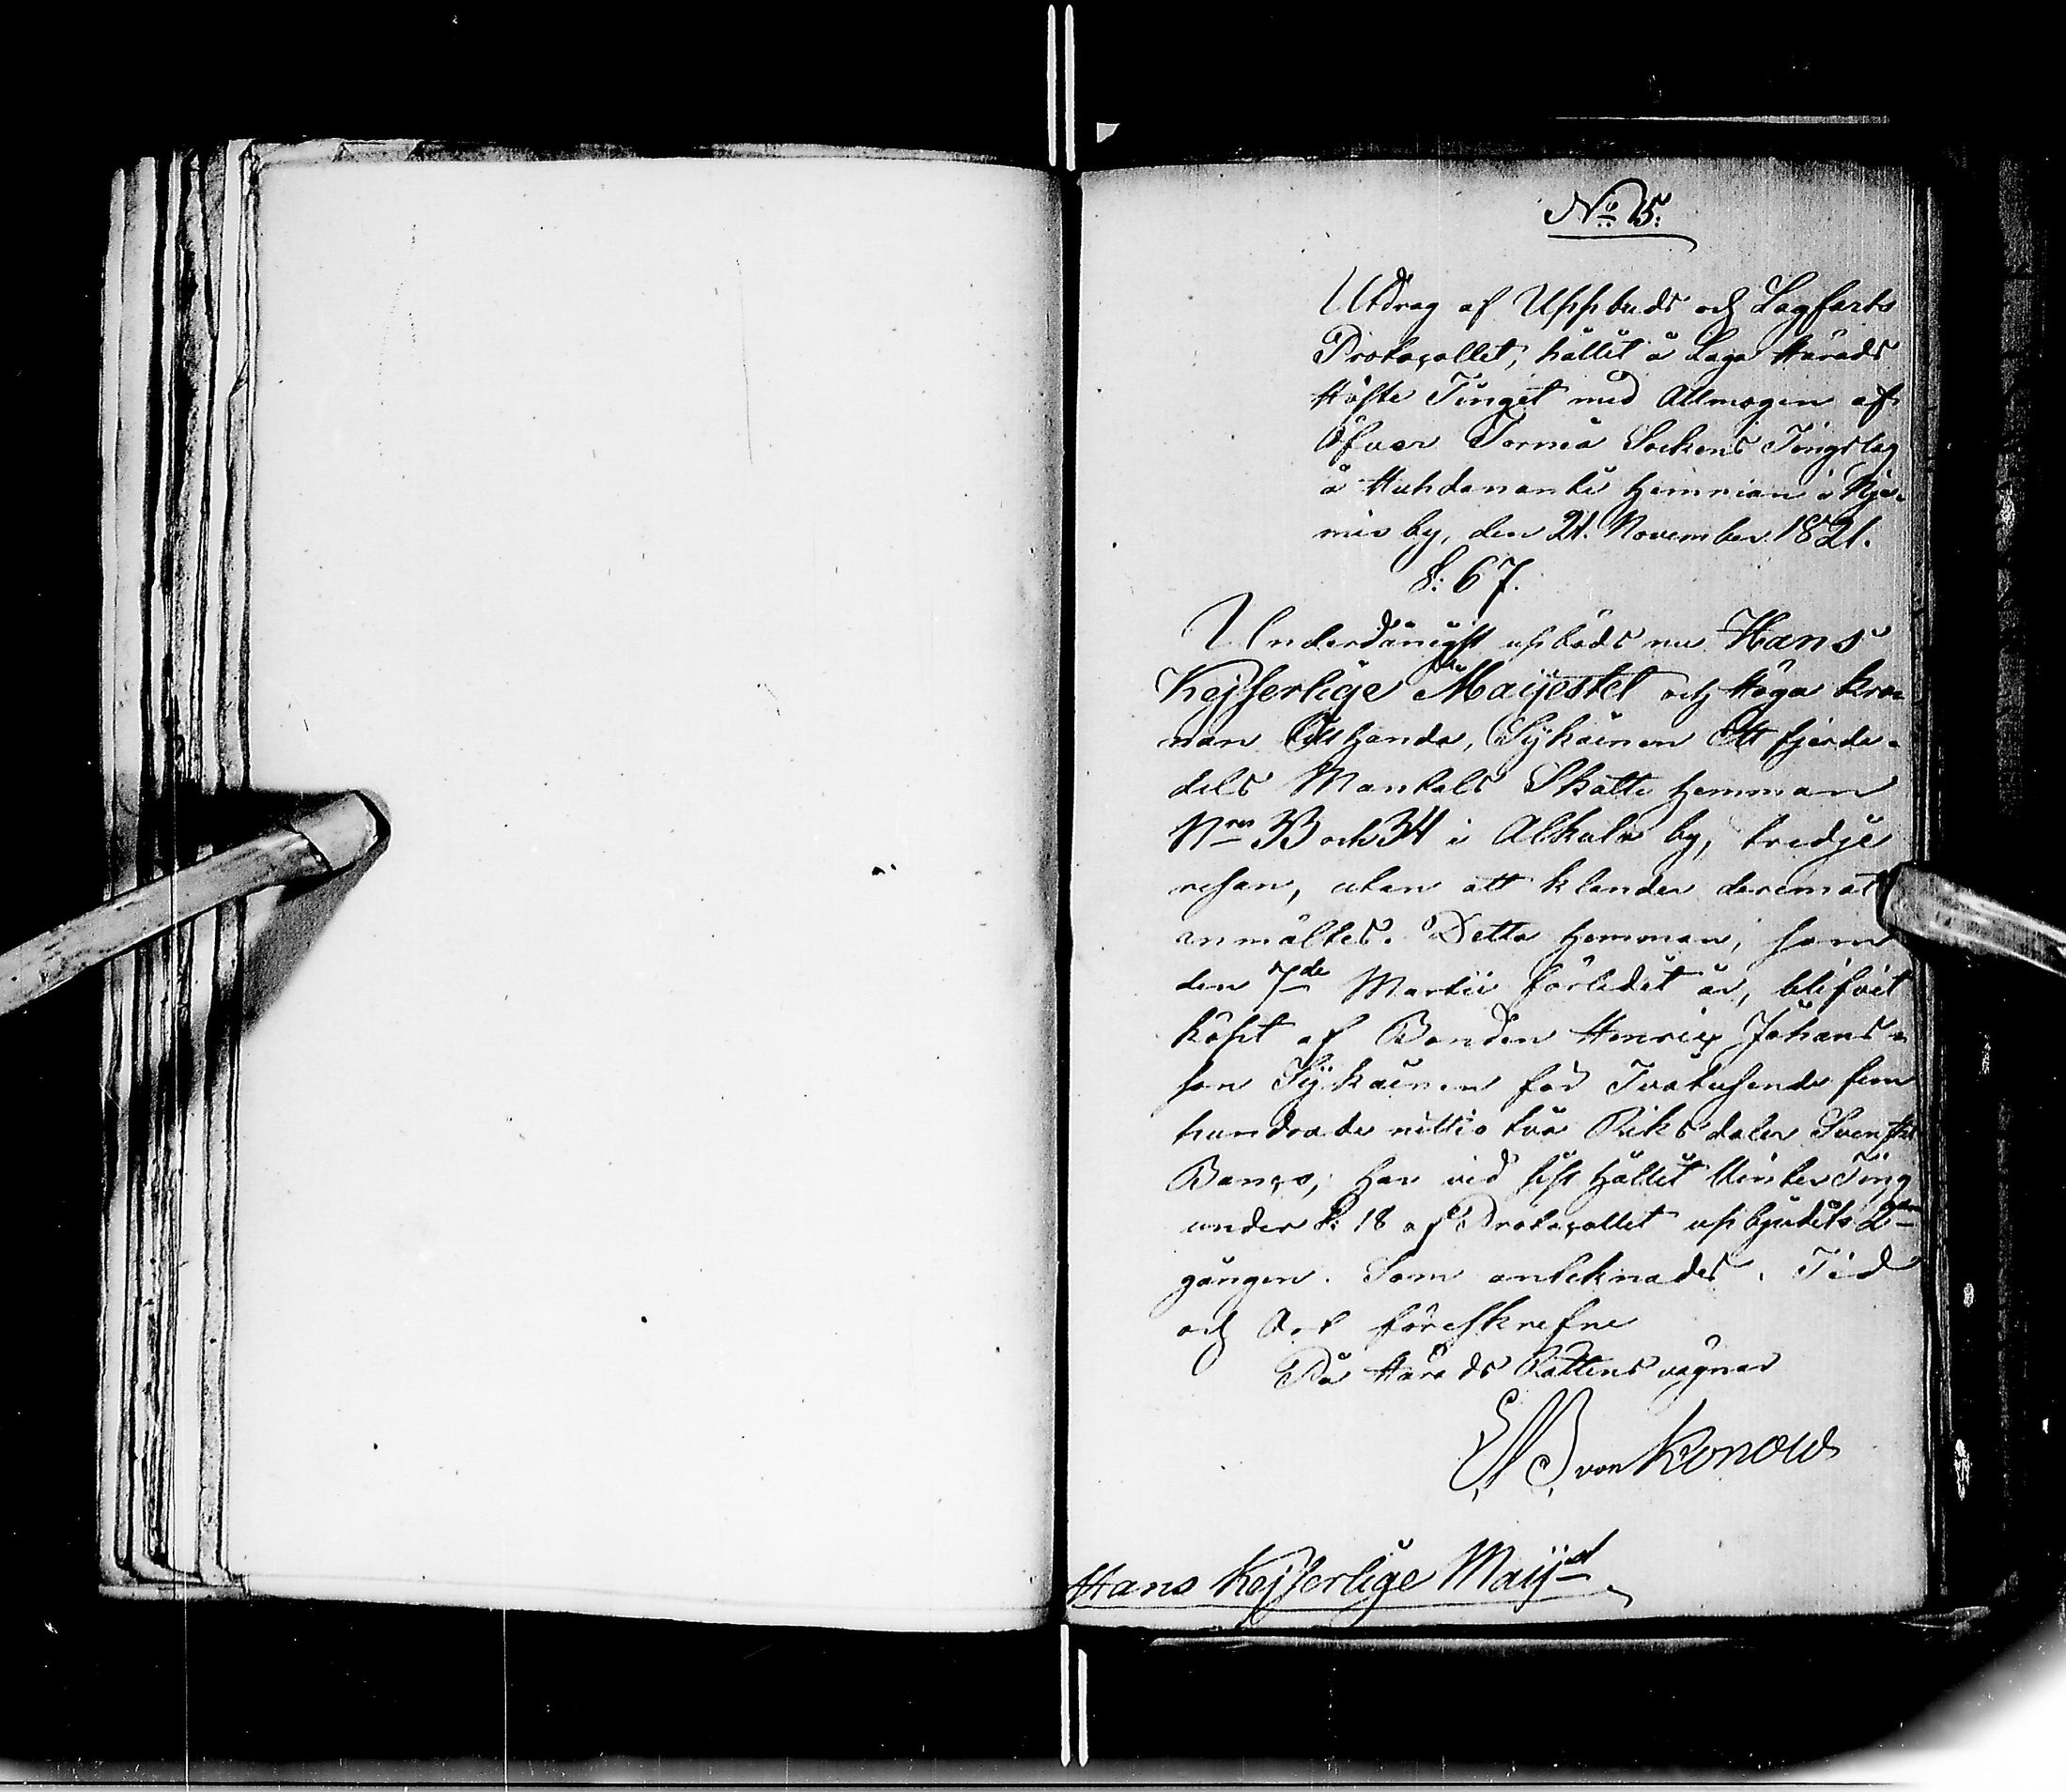 No 15.
Utdrag af Uppbuds och Lagfarts
Protocollet, hållit å Laga Härads
Höste Tinget med Allmogen af
Öfver Torneå Sockens Tingslag
å Huhdanantti hemman i Kje-
mis by, den 21. November 1821.
§: 67.
Underdånigst upböds nu Hans
Kejserlige Maijestet och Höga Kro-
nan till handa, Sykäinen Ett fjerde-
dels Mantals Skatte hemman
Nres 33 och 34 i Alkula by, tredje
resan, utan att klander deremot
anmältes. Detta hemman, som
den 7de Martii förledit år, blifvit
köpt af Bonden Henric Johans-
son Sykäinen för Tvåtusende fem
hundrade nittio två Riksdaler Svenskt
Banco, har vid sist hållit Vinter Ting
under §: 18 af Protocollet upbjudits 2dra
gången. Som antecknades. Tid
och Ort föreskrefne
På Härads Rättens vägnar
von Konow
Hans Kejserlige Maijt